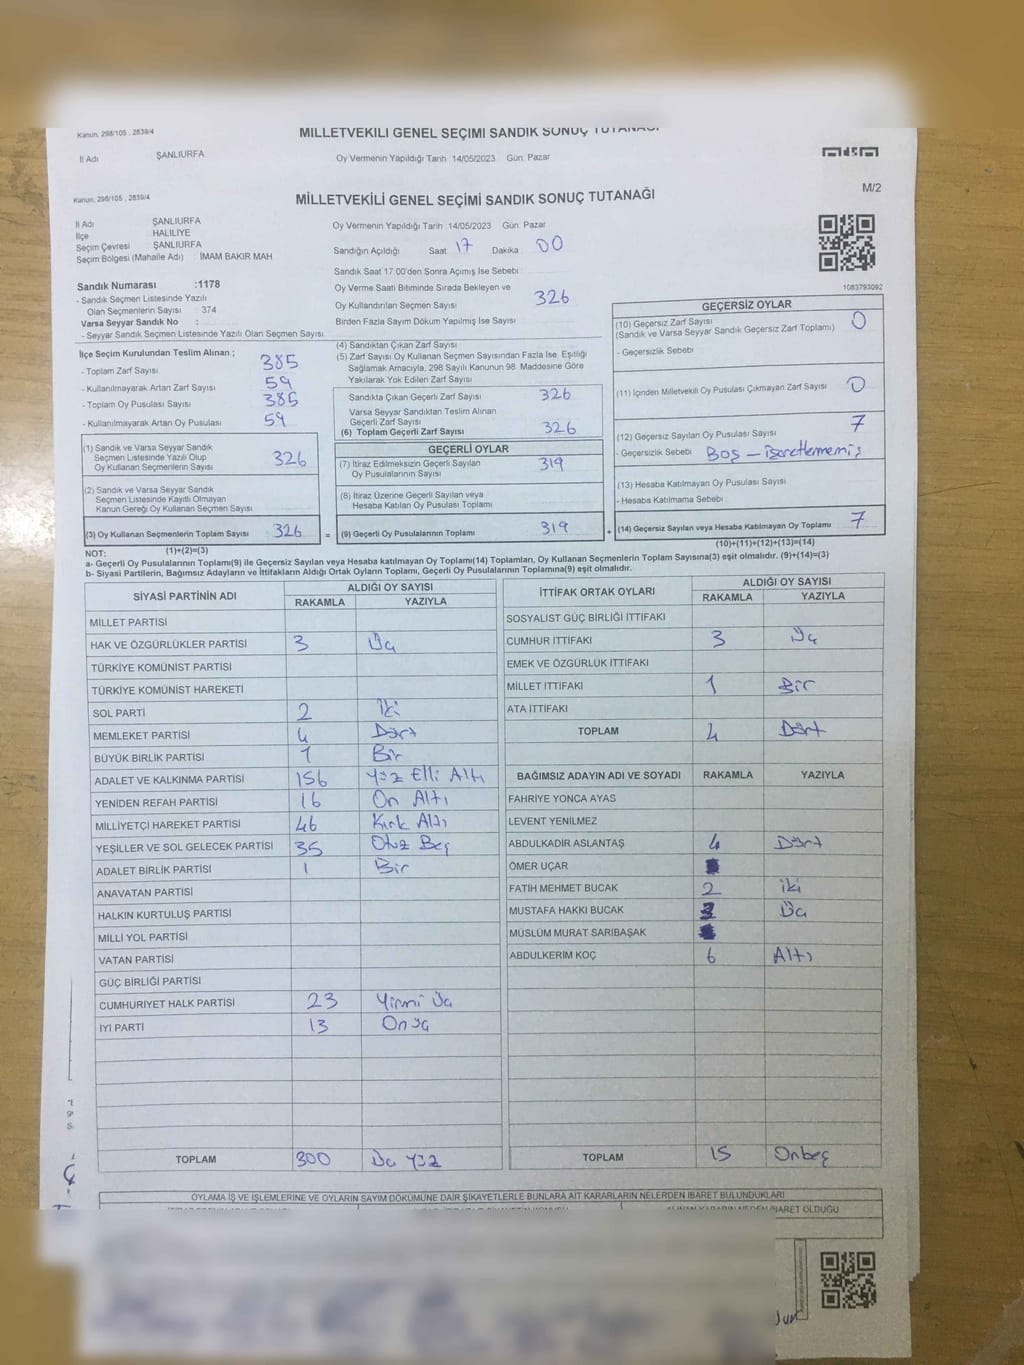 Kanun. 298/105 , 2839/4
MİLLETVEKİLİ GENEL SEÇİMİ SANDIK SONUÇ TUTANAĞI
İl Adı ŞANLIURFA
Oy Vermenin Yapıldığı Tarih 14/05/2023 Gün. Pazar
Kanun. 298/105 , 2839/4
MİLLETVEKİLİ GENEL SEÇİMİ SANDIK SONUÇ TUTANAĞI
M/2
İl Adı ŞANLIURFA
İlçe HALİLİYE
Seçim Çevresi ŞANLIURFA
Seçim Bölgesi (Mahalle Adı) İMAM BAKIR MAH
Oy Vermenin Yapıldığı Tarih 14/05/2023 Gün. Pazar
Sandığın Açıldığı Saat 17 Dakika 00
Sandık Saat 17:00'den Sonra Açımış İse Sebebi
Oy Verme Saati Bitiminde Sırada Bekleyen ve
Oy Kullandırılan Seçmen Sayısı 326
Birden Fazla Sayım Döküm Yapılmış İse Sayısı
1083793092
Sandık Numarası :1178
- Sandık Seçmen Listesinde Yazılı
Olan Seçmenlerin Sayısı 374
Varsa Seyyar Sandık No :
- Seyyar Sandık Seçmen Listesinde Yazılı Olan Seçmen Sayısı
İlçe Seçim Kurulundan Teslim Alınan ;
- Toplam Zarf Sayısı 385
- Kullanılmayarak Artan Zarf Sayısı 59
- Toplam Oy Pusulası Sayısı 385
- Kullanılmayarak Artan Oy Pusulası 59
(1) Sandık ve Varsa Seyyar Sandık
Seçmen Listesinde Yazılı Olup
Oy Kullanan Seçmenlerin Sayısı 326
(2) Sandık ve Varsa Seyyar Sandık
Seçmen Listesinde Kayıtlı Olmayan
Kanun Gereği Oy Kullanan Seçmen Sayısı
(3) Oy Kullanan Seçmenlerin Toplam Sayısı 326 =
(1)+(2)=(3)
(4) Sandıktan Çıkan Zarf Sayısı
(5) Zarf Sayısı Oy Kullanan Seçmen Sayısından Fazla İse, Eşitliği
Sağlamak Amacıyla, 298 Sayılı Kanunun 98. Maddesine Göre
Yakılarak Yok Edilen Zarf Sayısı
Sandıkta Çıkan Geçerli Zarf Sayısı 326
Varsa Seyyar Sandıktan Teslim Alınan
Geçerli Zarf Sayısı
(6) Toplam Geçerli Zarf Sayısı 326
GEÇERLİ OYLAR
(7) İtiraz Edilmeksizin Geçerli Sayılan
Oy Pusulalarının Sayısı 319
(8) İtiraz Üzerine Geçerli Sayılan veya
Hesaba Katılan Oy Pusulası Toplamı
(9) Geçerli Oy Pusulalarının Toplamı 319 +
GEÇERSİZ OYLAR
(10) Geçersiz Zarf Sayısı 0
(Sandık ve Varsa Seyyar Sandık Geçersiz Zarf Toplamı)
- Geçersizlik Sebebi
(11) İçinden Milletvekili Oy Pusulası Çıkmayan Zarf Sayısı 0
(12) Geçersiz Sayılan Oy Pusulası Sayısı 7
- Geçersizlik Sebebi Boş - işaretlenmemiş
(13) Hesaba Katılmayan Oy Pusulası Sayısı
- Hesaba Katılmama Sebebi
(14) Geçersiz Sayılan veya Hesaba Katılmayan Oy Toplamı 7
(10)+(11)+(12)+(13)=(14)
NOT:
a- Geçerli Oy Pusulalarının Toplamı(9) ile Geçersiz Sayılan veya Hesaba katılmayan Oy Toplamı(14) Toplamları, Oy Kullanan Seçmenlerin Toplam Sayısına(3) eşit olmalıdır. (9)+(14)=(3)
b- Siyasi Partilerin, Bağımsız Adayların ve İttifakların Aldığı Ortak Oyların Toplamı, Geçerli Oy Pusulalarının Toplamına(9) eşit olmalıdır.
SİYASİ PARTİNİN ADI ALDIĞI OY SAYISI
RAKAMLA YAZIYLA
MİLLET PARTİSİ
HAK VE ÖZGÜRLÜKLER PARTİSİ 3 Üç
TÜRKİYE KOMÜNİST PARTİSİ
TÜRKİYE KOMÜNİST HAREKETİ
SOL PARTİ 2 İki
MEMLEKET PARTİSİ 4 Dört
BÜYÜK BİRLİK PARTİSİ 1 Bir
ADALET VE KALKINMA PARTİSİ 156 Yüz Elli Altı
YENİDEN REFAH PARTİSİ 16 On Altı
MİLLİYETÇİ HAREKET PARTİSİ 46 Kırk Altı
YEŞİLLER VE SOL GELECEK PARTİSİ 35 Otuz Beş
ADALET BİRLİK PARTİSİ 1 Bir
ANAVATAN PARTİSİ
HALKIN KURTULUŞ PARTİSİ
MİLLİ YOL PARTİSİ
VATAN PARTİSİ
GÜÇ BİRLİĞİ PARTİSİ
CUMHURİYET HALK PARTİSİ 23 Yirmi Üç
İYİ PARTİ 13 Onüç
TOPLAM 300 Üç Yüz
İTTİFAK ORTAK OYLARI ALDIĞI OY SAYISI
RAKAMLA YAZIYLA
SOSYALİST GÜÇ BİRLİĞİ İTTİFAKI
CUMHUR İTTİFAKI 3 Üç
EMEK VE ÖZGÜRLÜK İTTİFAKI
MİLLET İTTİFAKI 1 Bir
ATA İTTİFAKI
TOPLAM 4 Dört
BAĞIMSIZ ADAYIN ADI VE SOYADI RAKAMLA YAZIYLA
FAHRİYE YONCA AYAS
LEVENT YENİLMEZ
ABDULKADİR ASLANTAŞ 4 Dört
ÖMER UÇAR
FATİH MEHMET BUCAK 2 iki
MUSTAFA HAKKI BUCAK 3 Üç
MÜSLÜM MURAT SARIBAŞAK
ABDULKERİM KOÇ 6 Altı
TOPLAM 15 Onbeş
OYLAMA İŞ VE İŞLEMLERİNE VE OYLARIN SAYIM DÖKÜMÜNE DAİR ŞİKAYETLERLE BUNLARA AİT KARARLARIN NELERDEN İBARET BULUNDUKLARI